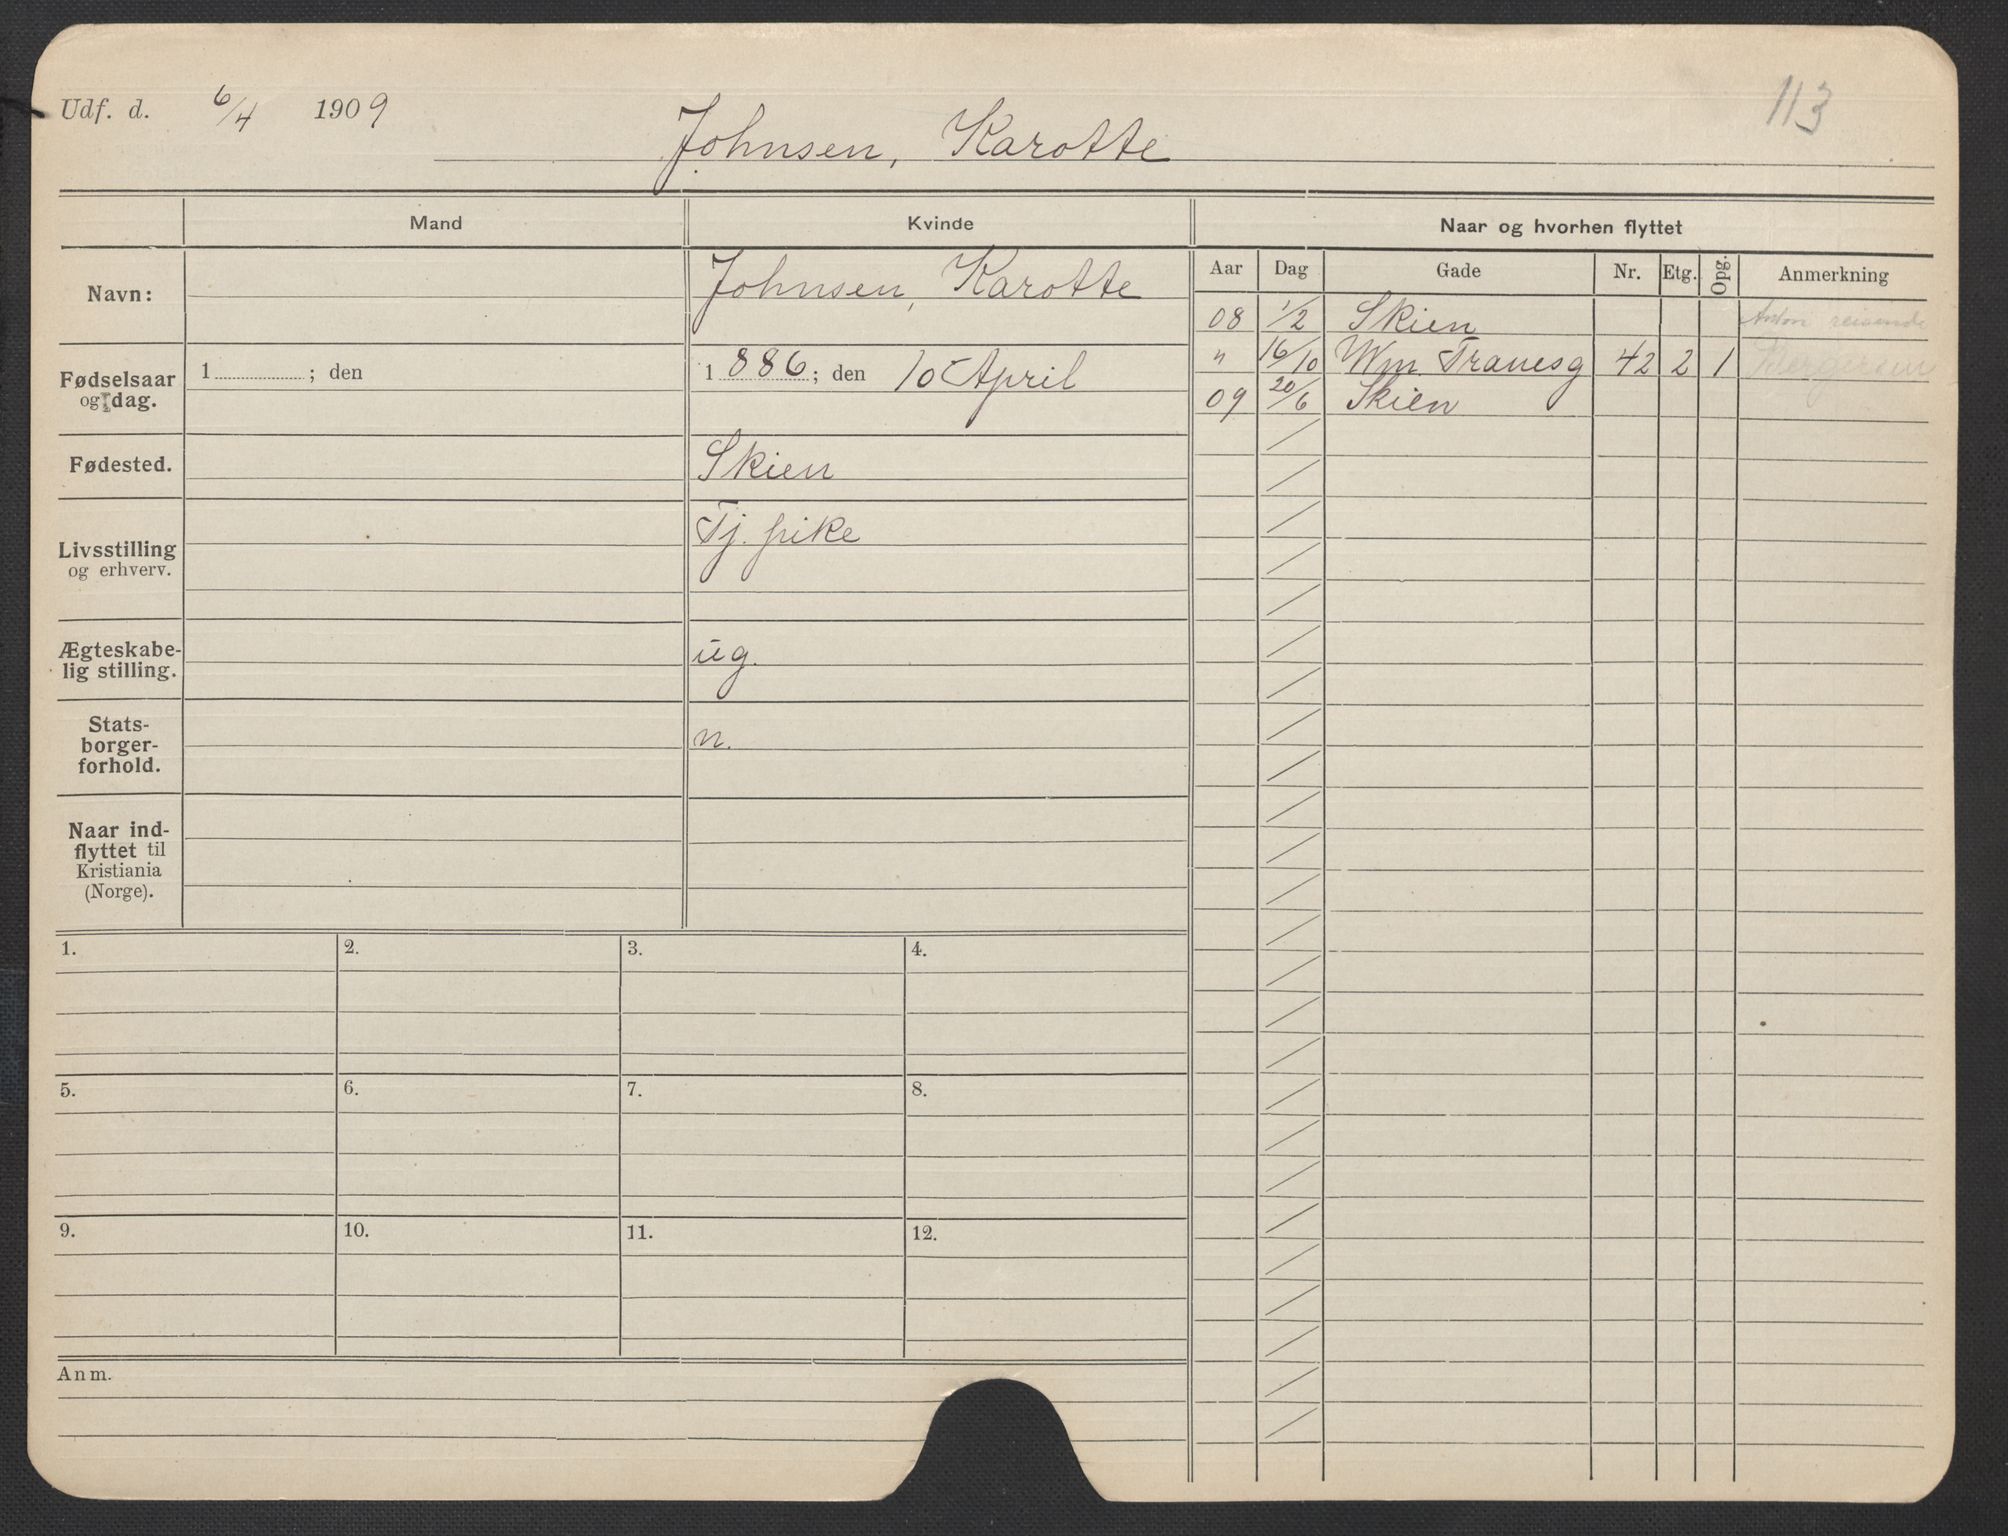 Udf. d. 6/4 1909
113
Johnsen, Karotte
Mand
Kvinde
Naar og hvorhen flyttet
Navn:
Johnsen, Karotte
Aar Dag Gade Nr. Etg. Opg. Anmerkning
08 1/2 Skien Anton reisende
" 16/10 Wm Tranesg 42 2 1
09 20/6 Skien
Fødselsaar
og dag.
1 ; den
1886; den 10 April
Fødested.
Skien
Livsstilling
og erhverv.
Tj. pike
Ægteskabe-
lig stilling.
ug.
Stats-
borger-
forhold.
n.
Naar ind-
flyttet til
Kristiania
(Norge).
1. 2. 3. 4.
5. 6. 7. 8.
9. 10. 11. 12.
Anm.